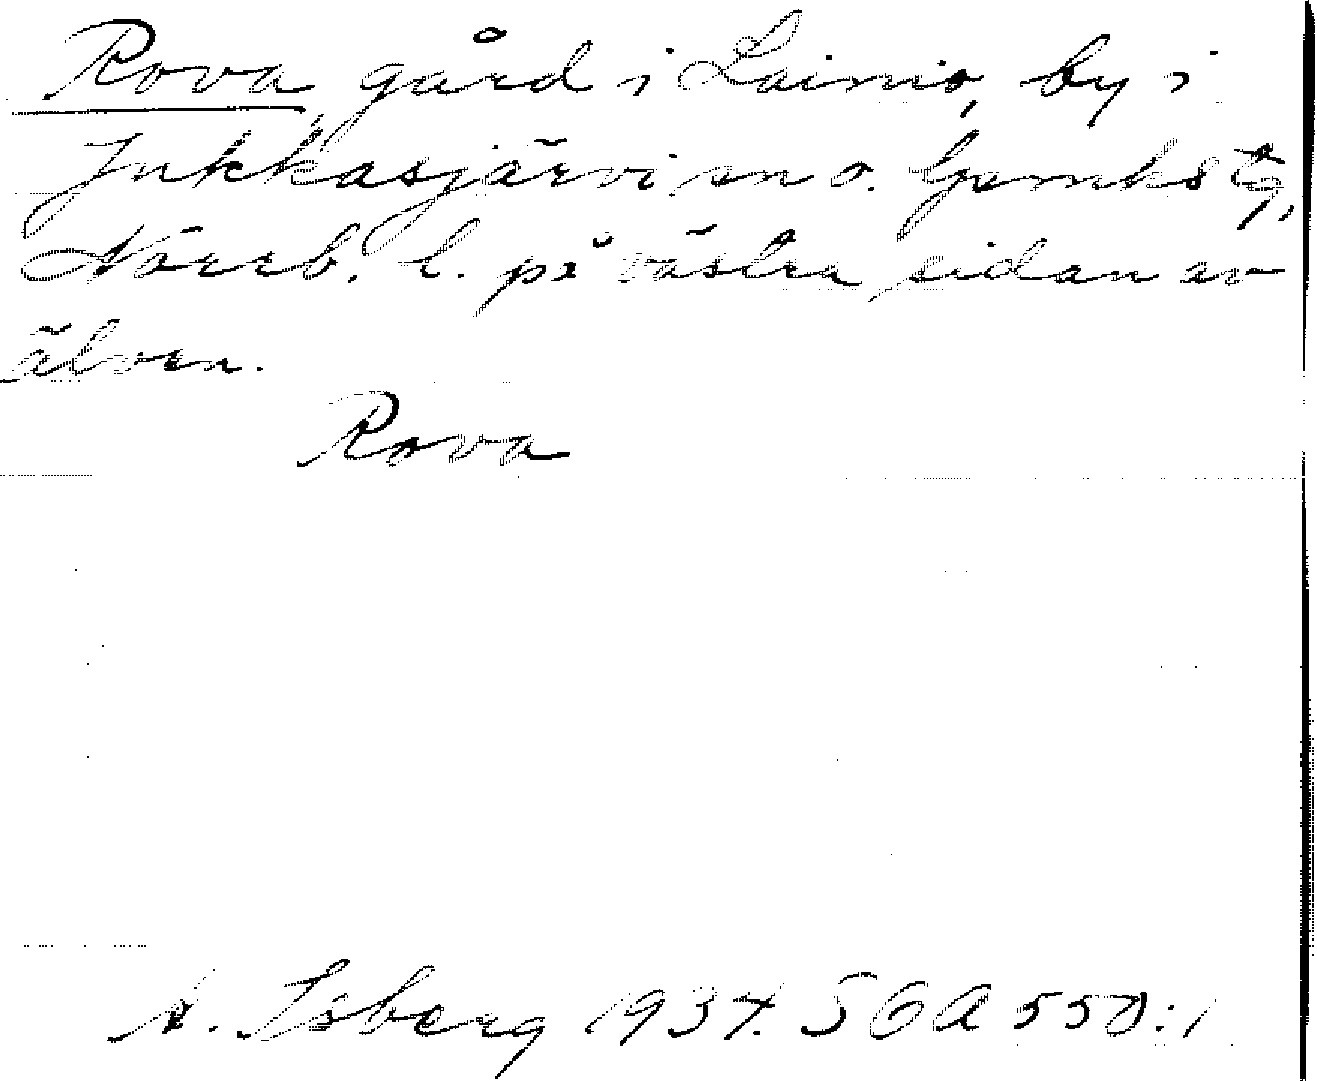 Rova, gård i Lainio, by i
Jukkasjärvi sn o. tjsmhstg,
Norrb. l. på västra sidan av
älven.
Rova
A. Isberg 1934. SOA 550:1